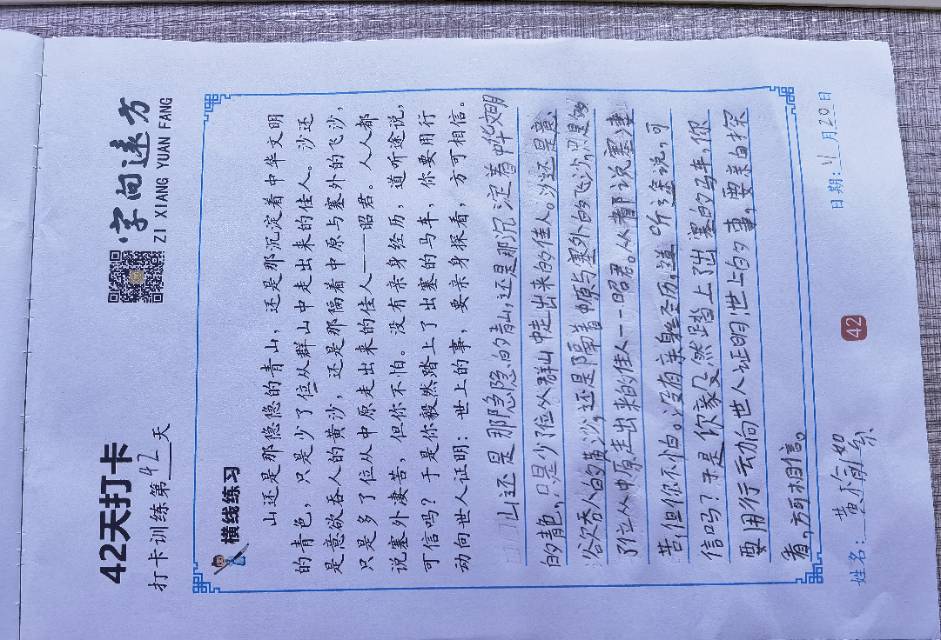 42天打卡
打卡训练第42天
字间速方
ZI XIANG YUAN FANG
横线练习
山还是那隐隐的青山，还是那沉淀着中华文明
的青色，只是少了位从群山中走出来的佳人。沙还
是意欲吞人的黄沙，还是那隔着中原与塞外的飞沙，
只是多了位从中原走出来的佳人——昭君。人人都
说塞外凄苦，但你不怕。没有亲身经历，道听途说，
可信吗？于是你毅然踏上了出塞的马车，你要用行
动向世人证明：世上的事，要亲身探看，方可相信。
山还是那隐隐的青山,还是那沉淀着中华文明
的青色,只是少了位从群山中走出来的佳人。沙还是意
欲吞人的黄沙,还是隔着中原与塞外的飞沙,只是多
了位从中原走出来的佳人--昭君。人人都说塞外凄
苦,但你不怕。没有亲身经历,道听途说,可
信吗?于是你毅然踏上了出塞的马车,你
要用行动向世人证明:世上的事,要亲自探
看,方可相信。
姓名:
42
日期: 11月29日